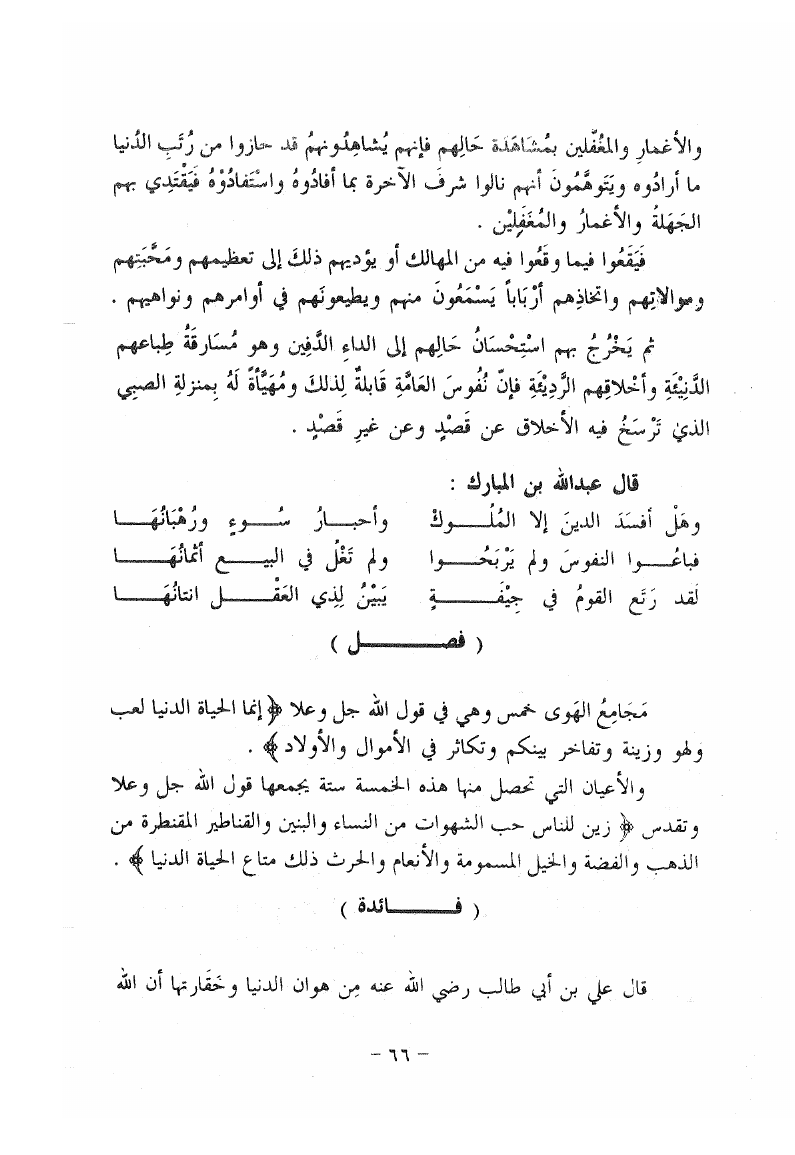 والأغمار والمغُفّلين بمُشَاهَدَة حَالِهم فإنهم يُشاهِدُونهمُ قد حازوا من رُتَبِ الدُنيا
ما أرادُوه ويَتَوهَّمُونَ أنهم نالوا شرفَ الآخرة بما أفادُوهُ واسْتَفادُوْهُ فَيَقْتَدِي بهم
الجَهَلةُ والأغمارُ والمُغَفِليْن .
فَيَقَعُوا فيما وقَعُوا فيه من المهالك أو يؤديهم ذلكَ إلى تعظيمهم ومَحَّبَتِهم
وموالاتِهم واتخاذِهم أرْبَاباً يَسْمَعُونَ منهم ويطيعونَهم في أوامرهم ونواهيهم .
ثم يَخْرُجُ بهم اسْتِحْسَانُ حَالِهم إلى الداءِ الدَّفِين وهو مُسَارقَةُ طِباعهم
الدَّنِيْئَةِ وأخْلاقِهم الرَّدِيْئَةِ فإنّ نُفُوسَ العَامَّةِ قابلةٌ لِذلكَ ومُهَيَّأةٌ لَهُ بِمنزلةِ الصبِي
الذي تَرْسَخُ فيه الأخلاق عن قَصْدٍ وعن غيرِ قَصْدٍ .
قال عبدالله بن المبارك :
وهَلْ أفسَدَ الدينَ إلا المُلُـــوكْ وأحبـــارُ سُـــوءٍ ورُهْبَانُهَـــا
فباعُـــوا النفوسَ ولم يَرْبَحُـــوا ولم تَغْلُ في البيـــع أثمانُهَـــا
لَقد رَتَع القومُ في جِيْفَـــةٍ يَبْيْنُ لِذي العَقْـــل انتانُهَـــا
( فصـــل )
مَجَامِعُ الهَوى خمس وهي في قول الله جل وعلا ﴿ إنما الحياة الدنيا لعب
ولهو وزينة وتفاخر بينكم وتكاثر في الأموال والأولاد ﴾ .
والأعيان التي تحصل منها هذه الخمسة ستة يجمعها قول الله جل وعلا
وتقدس ﴿ زين للناس حب الشهوات من النساء والبنين والقناطير المقنطرة من
الذهب والفضة والخيل المسمومة والأنعام والحرث ذلك متاع الحياة الدنيا ﴾ .
( فـــائدة )
قال علي بن أبي طالب رضي الله عنه مِن هوان الدنيا وحَقَارتِها أن الله
– ٦٦ –